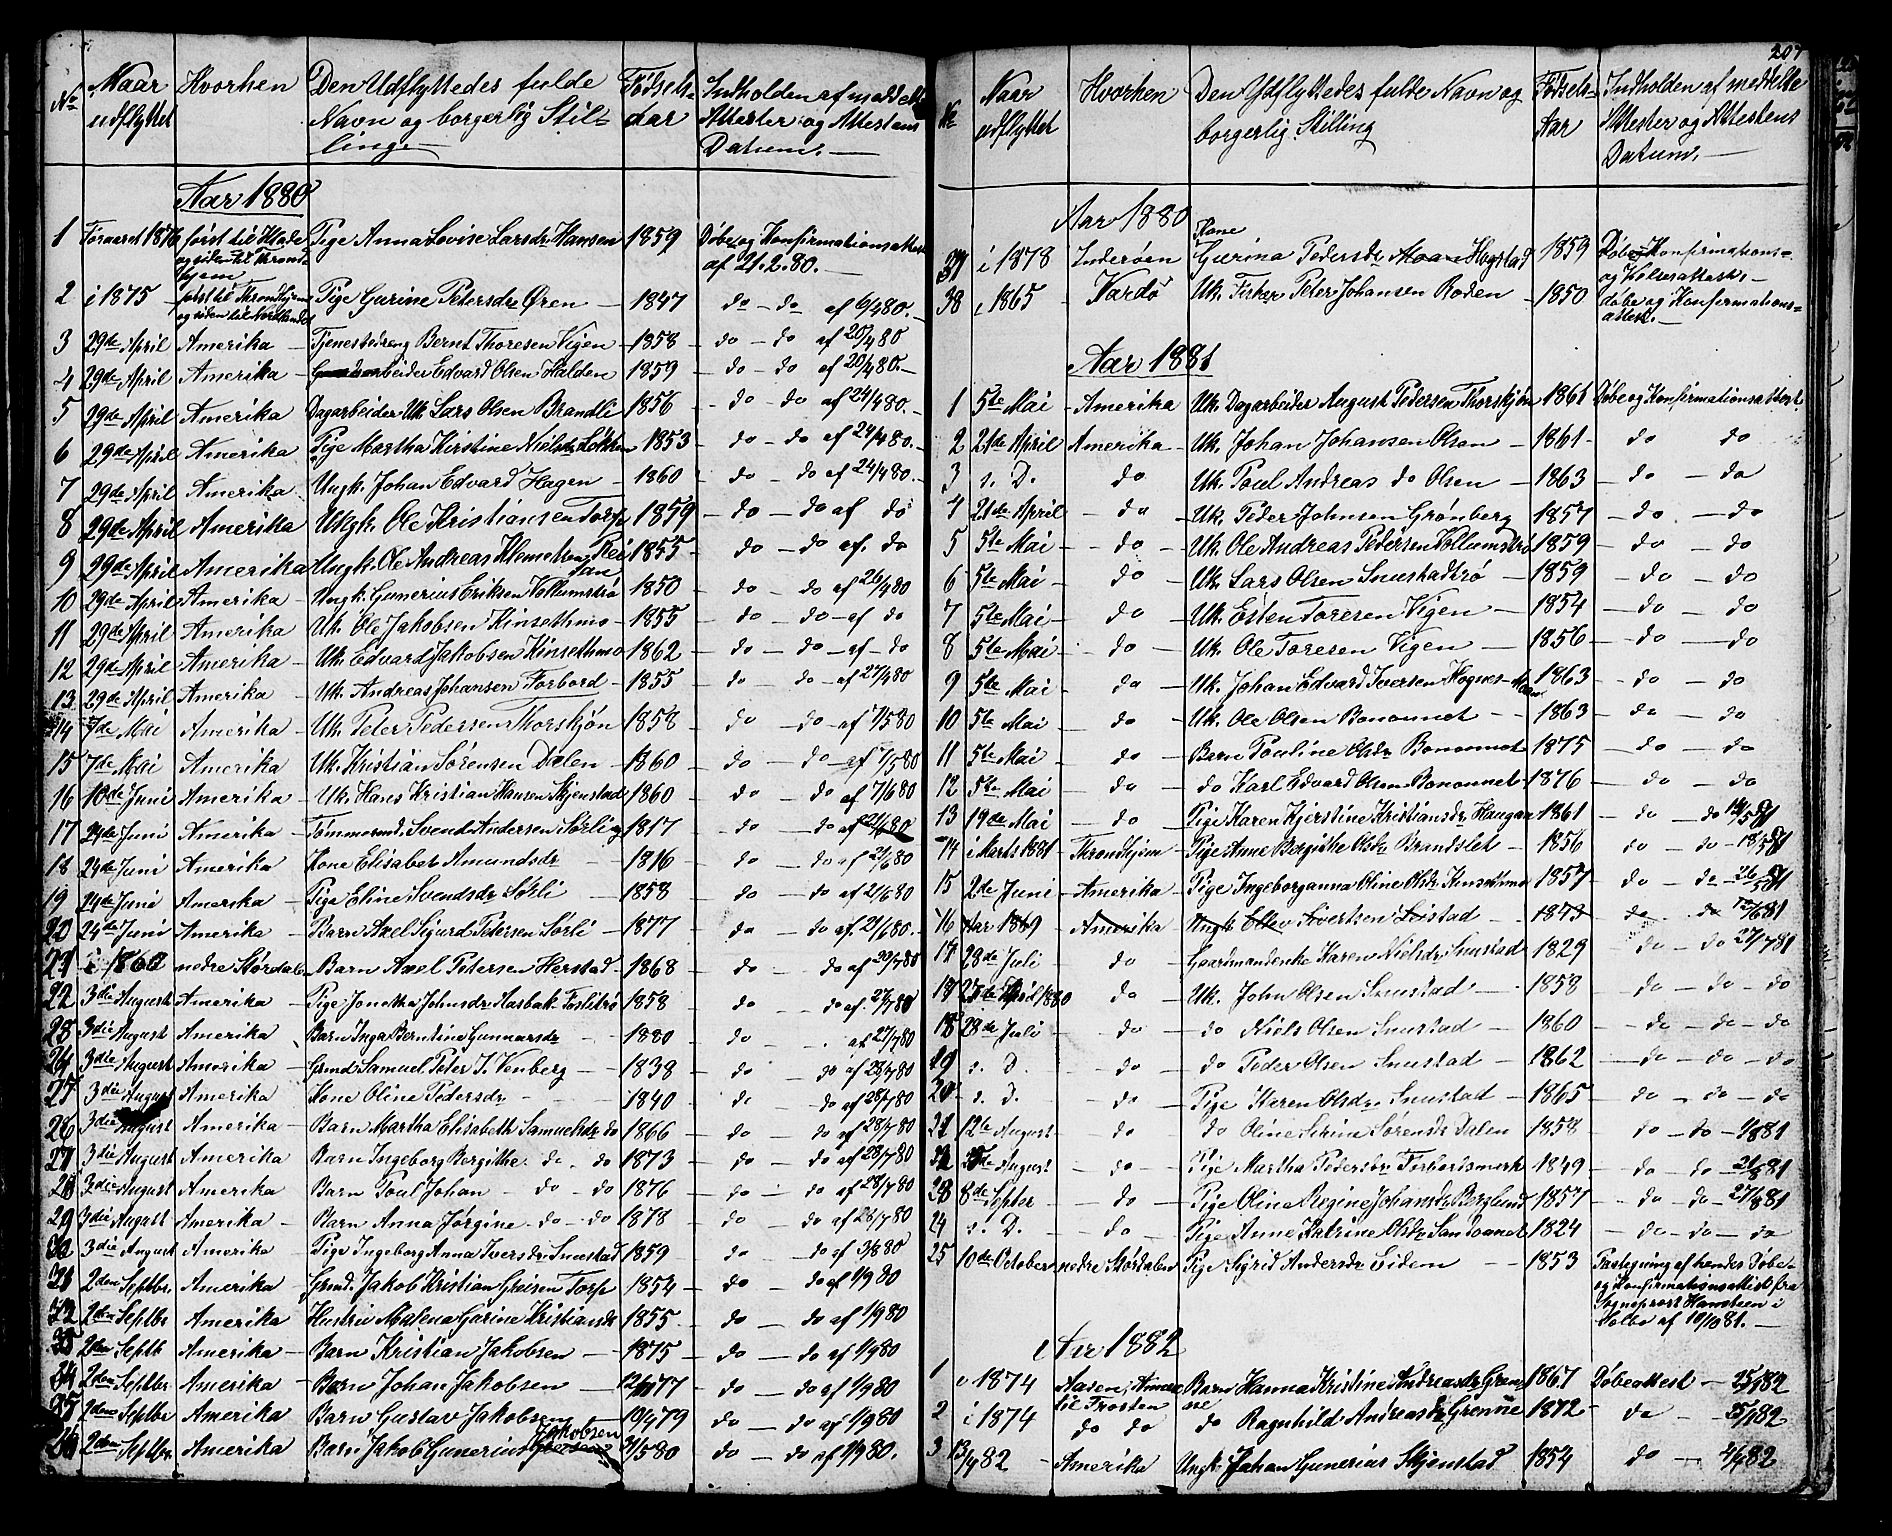 No | Naar udflyttet | Hvorhen | Den Udflyttedes fulde Navn og borgerlig Stilling. | Fødsels-Aar | Indholden af meddelte Attester og Attestens Datum.
Aar 1880
1 | Foraaret 1876 | først til Hlade og siden til Thrond-hjem | Pige Anna Lovise Larsdr Hansen | 1859 | Døbe og Konfirmationsattest af 21.2.80.
2 | i 1875 | først til Throndhjem og siden til Nordlandet | Pige Gurine Petersdr Øren | 1847 | do do af 6/4 80.
3 | 29de April | Amerika | Tjenestedreng Bernt Thoresen Vigen | 1858 | do do af 20/4 80
4 | 29de April | Amerika | Edvard Olsen Halden | 1859 | do do af 20/4 80.
5 | 29de April | Amerika | Dagarbeider Uk. Lars Olsen Brandli | 1856 | do do af 24/4 80.
6 | 29de April | Amerika | Pige Martha Kirstine Nielsdr Løkken | 1853 | do do af 24/4 80.
7 | 29de April | Amerika | Ungk. Johan Edvard Hagen | 1860 | do do af 24/4 80.
8 | 29de April | Amerika | Ungk. Ole Kristiansen Torp | 1859 | do do af do
9 | 29de April | Amerika | Ungk. Ole Andreas Klemetsen | 1855 | do do af. do
10 | 29de April | Amerika | Ungk. Gunerius Eriksen Vollumstrø | 1850 | do do af 26/4 80
11 | 29de April | Amerika | Uk. Ole Jakobsen Kinsethmo | 1855 | do do af do
12 | 29de April | Amerika | Uk. Edvard Jakobsen Kinsethmo | 1862 | do do af do
13 | 29de April | Amerika | Uk. Andreas Johansen Forbord | 1855 | do do af 27/4 80
14 | 7de Mai | Amerika | Uk. Peter Pedersen Thorskjøn | 1858 | do do af 1/5 80
15 | 7de Mai | Amerika | Uk. Kristian Sørensen Dalen | 1860 | do do af 1/5 80
16 | 10de Juni | Amerika | Uk. Hans Kristian Hansen Skjenstad | 1860 | do do af 7/6 80
17 | 24de Juni | Amerika | Tømmermd. Svend Andersen Sørli | 1817 | do do af 21/6 80
18 | 24de Juni | Amerika | Kone Elisabet Amundsdr | 1816 | do do af 21/6 80
19 | 24de Juni | Amerika | Pige Eline Svendsdr Sørli | 1858 | do do af 21/6 80
20 | 24de Juni | Amerika | Barn Axel Sigurd Petersen Sørli | 1877 | do do af. 21/6 80.
21 | i 1860 | nedre Størdalen | Barn Axel Petersen Herstad | 1868 | do do af 29/7 80
22 | 3die August | Amerika | Pige Jonetha Johnsdr Hasbak | 1858 | do do af. 27/7 80
23 | 3die August | Amerika | Barn Inga Berntine Gunnarsdr | 1880 | do af 27/7 80
24 | 3die August | Amerika | Grmd Samuel Peter I. Venberg | 1838 | do do af 28/7 80
25 | 3die August | Amerika | Kone Oline Pedersdr | 1840 | do do af 28/7 80
26 | 3die August | Amerika | Barn Martha Elisabeth Samuelsdr do | 1866 | do do af 28/7 80
27 | 3die August | Amerika | Barn Ingeborg Bergithe do do | 1873 | do do af 28/7 80
28 | 3die August | Amerika | Barn Poul Johan do do | 1876 | do do af 28/7 80
29 | 3die August | Amerika | Barn Anna Jørgine do do | 1878 | do do af 28/7 80
30 | 3die August | Amerika | Pige Ingeborg Anna Iversdr Snustad | 1859 | do do af 3/8 80
31 | 2den Septbr. | Amerika | Grmd. Jakob Kristian Torp | 1854 | do do af 1/9 80
32 | 2den Septbr | Amerika | Hustru Malena Gurine Kristiansdr | 1855. | do do af 1/9 80
33 | 2den Septb | Amerika | Barn Kristian Jakobsen | 1875 | do do af 1/9 80
34 | 2den Septbr. | Amerika | Barn Johan Jakobsen | 77 | do do af 1/9 80
35 | 2den Septbr | Amerika | Barn Gustav Jakobsen | 10/4 79 | do do af 1/9 80
36 | 2den Septbr. | Amerika | Barn Jakob Gunerius Jakobsen | 31/5 80 | do do af 1/9 80.
207
No | Naar udflyttet | Hvorhen | Den Udflyttedes fulde Navn og borgerlig Stilling | Fødsels-Aar | Indholden af meddelte Attester og Attestens Datum.
Aar 1880
37 | i 1878 | Inderøen | Kone Gurina Pedersdr Hogstad | 1859 | Døbe, Konfirmations- og Vielsesattest.
38 | i 1865 | Vardø | Uk. Fisker Peter Johansen Roden | 1850 | døbe og Konfirmations-attest.
Aar 1881
1 | 5te Mai | Amerika | Uk. Dagarbeider August Pedersen Thorskjøn | 1861 | Døbe og Konfirmationsattest.
2 | 21de April | Amerika | Uk. Johan Johansen Olsen | 1861 | do do
3 | s. D. | do | Uk. Poul Andreas do Olsen | 1863 | do do
4 | 21de April | do | Uk. Peder Johnsen Grønberg | 1857 | do do
5 | 5te Mai | do | Uk. Ole Andreas Pedersen Vollumstrø | 1859 | do do
6 | 5te Mai | do | Uk. Lars Olsen Snustadtrø | 1859 | do do
7 | 5te Mai | do | Uk. Esten Toresen Vigen | 1854 | do do
8 | 5te Mai | do | Uk. Ole Toresen Vigen | 1856 | do do
9 | 5te Mai | do | Uk. Johan Edvard Iversen | 1863 | do do
10 | 5te Mai | do | Uk. Ole Olsen Bonamnet | 1863 | do do
11 | 5te Mai | do | Barn Pauline Olsdr Bonamnet | 1875 | do do
12 | 5te Mai | do | do Karl Edvard Olsen Bonamnet | 1876 | do do
13 | 19de Mai | do | Pige Karen Kjerstine Kristiansdr Haugan | 1861 | do do 14/5 81
14 | i Marts 1881 | Throndhjem | Pige Anne Bergithe Olsdr Brandslet | 1856 | do do 18/5 81
15 | 2de Juni | Amerika | Pige Ingeborganna Oline Olsdr Kinsethmo | 1857 | do do 26/5 81
16 | Aar 1869 | Amerika | Ungk. Sivertsen Leistad | 1843 | do do 12/6 81
17 | 28de Juli | do | Gaardmandenke Karen Nielsdr Snustad | 1829 | do do 27/7 81
17 | 25de April 1880 | do | Uk. John Olsen Snustad | 1858 | do do do
18 | 28de Juli | do | do Niels Olsen Snustad | 1860 | do do do
19 | s. D. | do | do Peder Olsen Snustad | 1862 | do do do
20 | s. D. | do | Pige Karen Olsdr. Snustad | 1865 | do do do
21 | 12te August | do | do Oline Serine Sørensdr Dalen | 1858 | do do 9/8 81
22 | August | do | Pige Martha Pedersdr Forbordsmark | 1849 | do do 21/8 81
23 | 8de Septbr | do | Pige Oline Regine Johansdr Berglund | 1857 | do do 27/8 81
24 | s. D. | do | Pige Anne Katrine Olsdr Sandvamet | 1824 | do do do
25 | 10de October | nedre Størdalen | Pige Sigrid Andersdr Eidem | 1853 | Paategning af hendes Døbe- og Konfirmationsattest fra Sogneprest Hansteen i Holbo af 10/10 81.
Aar 1882
1 | i 1874 | Aasen, Annex til Frosten | Barn Hanna Kristine Andreasdr Grenne | 1867 | Døbeattest 25/1 82
2 | i 1874 | do do | do Ragnhild Andreasdr Grenne | 1872 | do 25/1 82
3 | 13/4 82 | Amerika | Ungk. Johan Gunerius Skjenstad | 1854 | do 4/4 82